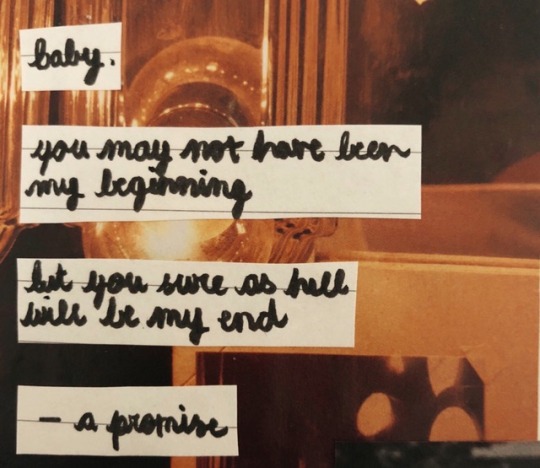 baby.
you may not have been
my beginning
but you sure as hell
will be my end
- a promise